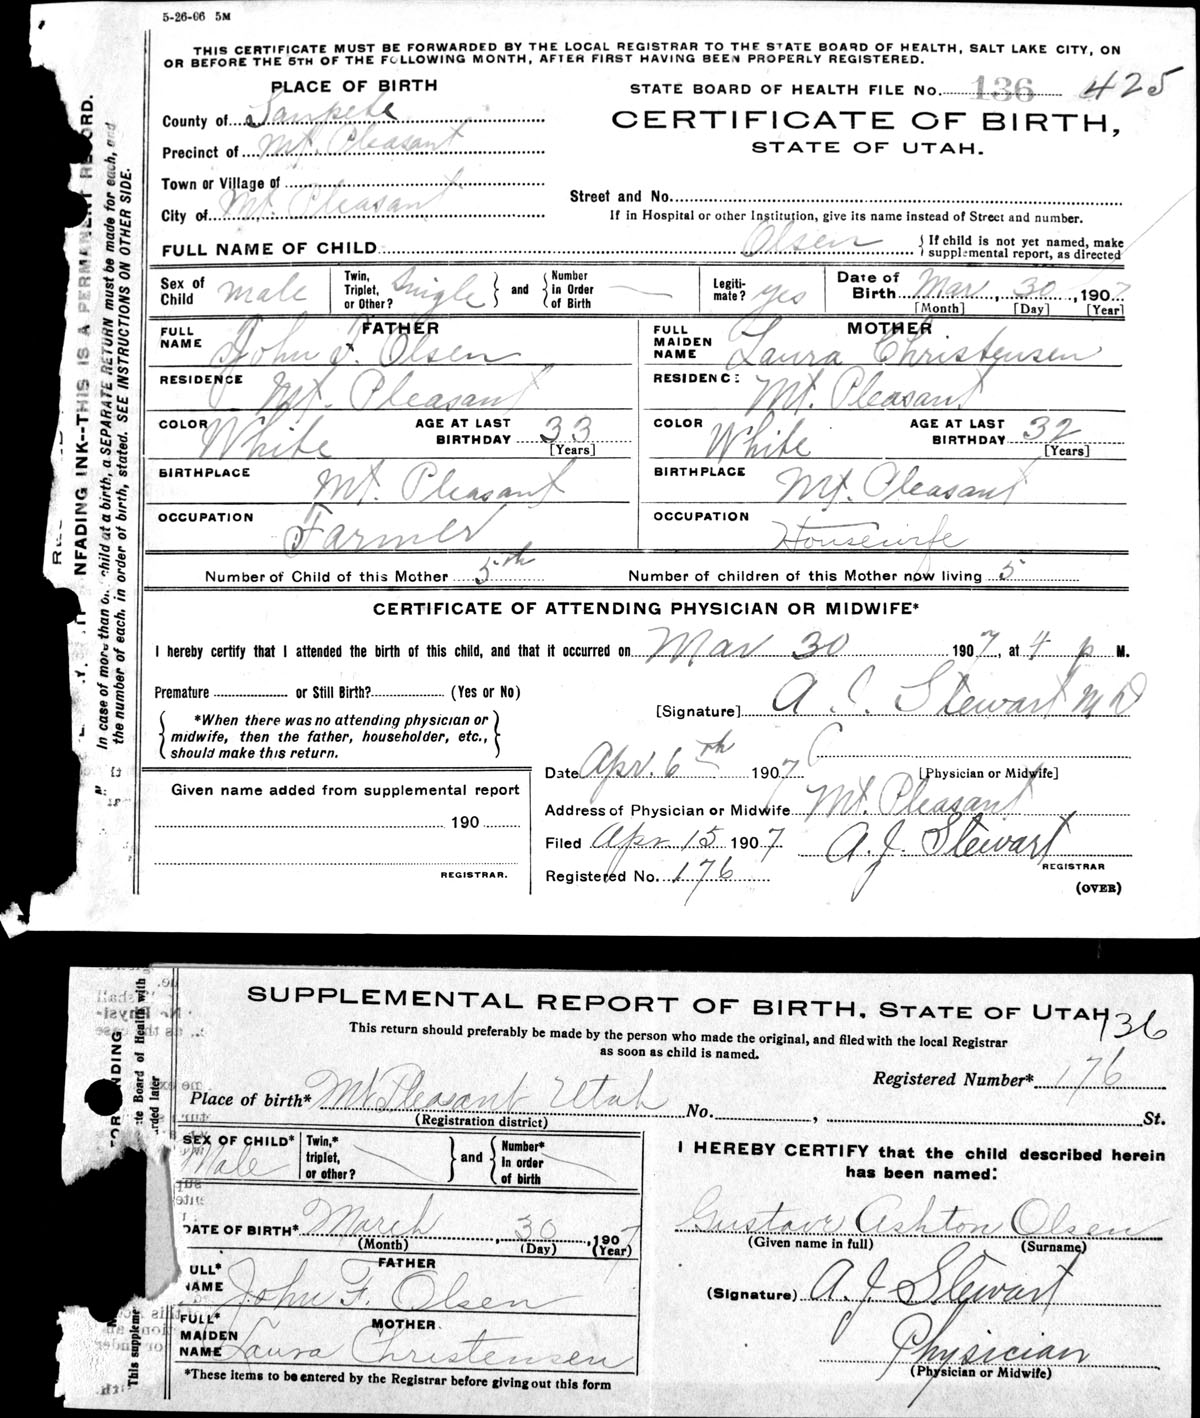 5-26-06 5M
THIS CERTIFICATE MUST BE FORWARDED BY THE LOCAL REGISTRAR TO THE STATE BOARD OF HEALTH, SALT LAKE CITY, ON
OR BEFORE THE 5TH OF THE FOLLOWING MONTH, AFTER FIRST HAVING BEEN PROPERLY REGISTERED.
PLACE OF BIRTH
STATE BOARD OF HEALTH FILE No. 136 425
County of Sanpete
CERTIFICATE OF BIRTH,
STATE OF UTAH.
Precinct of Mt. Pleasant
Town or Village of
Street and No.
City of Mt. Pleasant
If in Hospital or other Institution, give its name instead of Street and number.
FULL NAME OF CHILD Olsen { If child is not yet named, make supplemental report, as directed
Sex of Child male Twin, Triplet, or Other? Single } and { Number in Order of Birth Legiti-mate? yes Date of Birth Mar, 30, 1907
[Month] [Day] [Year]
FATHER
FULL NAME John F. Olsen
MOTHER
FULL MAIDEN NAME Laura Christensen
RESIDENCE Mt. Pleasant
RESIDENCE Mt. Pleasant
COLOR White AGE AT LAST BIRTHDAY 33 [Years]
COLOR White AGE AT LAST BIRTHDAY 32 [Years]
BIRTHPLACE Mt. Pleasant
BIRTHPLACE Mt. Pleasant
OCCUPATION Farmer
OCCUPATION Housewife
Number of Child of this Mother 5th Number of children of this Mother now living 5
CERTIFICATE OF ATTENDING PHYSICIAN OR MIDWIFE*
I hereby certify that I attended the birth of this child, and that it occurred on Mar 30 1907, at 4 p M.
Premature or Still Birth? (Yes or No)
[Signature] A. J. Stewart MD
*When there was no attending physician or
midwife, then the father, householder, etc.,
should make this return.
Date Apr. 6th 1907 [Physician or Midwife]
Given name added from supplemental report
190
REGISTRAR.
Address of Physician or Midwife Mt. Pleasant
Filed Apr 15 1907 A. J. Stewart
REGISTRAR
Registered No. 176
(OVER)
NFADING INK--THIS IS A PERMANENT RECORD.
In case of more than one child at a birth, a SEPARATE RETURN must be made for each, and
the number of each, in order of birth, stated. SEE INSTRUCTIONS ON OTHER SIDE.
SUPPLEMENTAL REPORT OF BIRTH, STATE OF UTAH 136
This return should preferably be made by the person who made the original, and filed with the local Registrar
as soon as child is named.
Registered Number* 176
Place of birth* Mt Pleasant Utah No. , St.
(Registration district)
SEX OF CHILD* Male Twin,* triplet, or other? } and { Number* in order of birth
I HEREBY CERTIFY that the child described herein
has been named:
DATE OF BIRTH* March, 30, 1907
(Month) (Day) (Year)
Gustave Ashton Olsen
(Given name in full) (Surname)
FATHER
FULL* NAME John F. Olsen
(Signature) A. J. Stewart
MOTHER
FULL* MAIDEN NAME Laura Christensen
Physician
(Physician or Midwife)
*These items to be entered by the Registrar before giving out this form